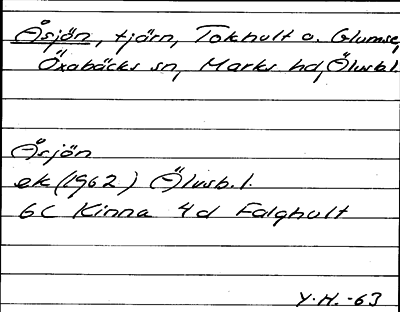 Åsjön, tjärn, Tokhult o. Glumse,
Öxabäcks sn, Marks hd, Älvsb.l.
Åsjön
ek (1962) Älvsb.l.
6C Kinna 4d Falghult
Y.H. -63